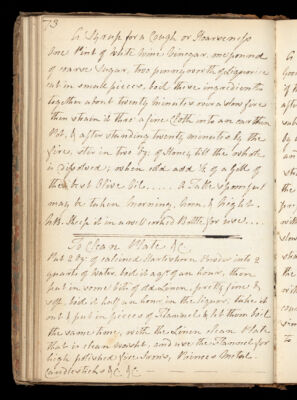 73
A Syrup for a Cough or Hoarseness
One Pint of White Wine Vinegar, one pound
of coarse Sugar, two pennyworth of Liquorice
cut in small pieces, boil these ingredients
together about twenty minutes over a slow fire
then strain it thro' a fine Cloth into an earthen
Pot, & after standing twenty minutes by the
fire, stir in two Oz: of Honey, till the whole
is dissolved; when cold add ¼ of a gill of
the best Olive Oil..... A Table spoonful
may be taken morning, Noon, & Night.
NB. Keep it in a well corked Bottle for use....
To Clean Plate &C.
Put 2 Oz of calcined Hartshorn Powder into 2
quarts of Water, boil it a qr of an hour, then
put in some bits of old Linen, pretty fine &
soft, boil it half an hour in the liquor, take it
out & put in pieces of Flannel & let them boil
the same time, with the Linen clean Plate
that is clean washt, and use the Flannel for
high polished fire Irons, Princes Metal
Candlesticks &C. &C